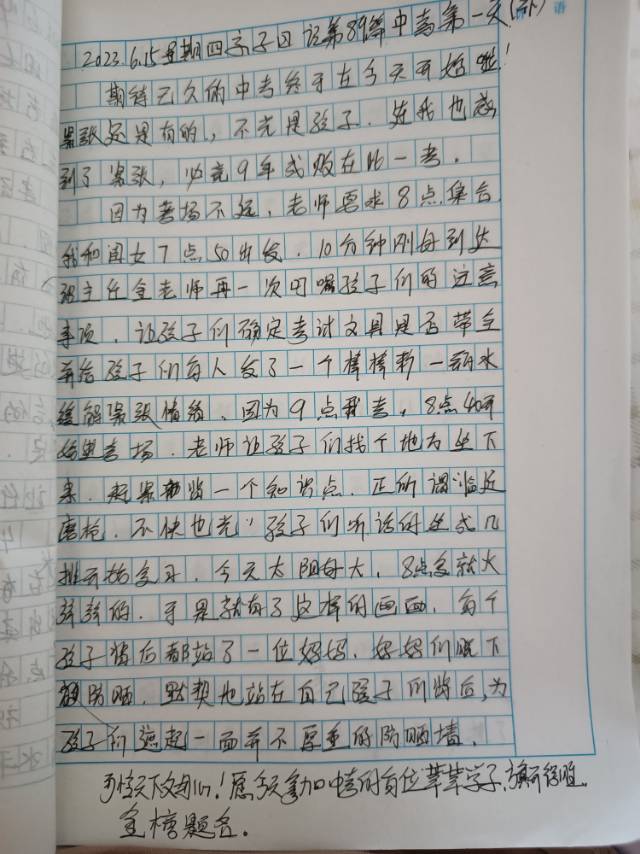 2023.6.15星期四亲子日记第89篇中考第一天(补)
期待已久的中考终于在今天开始啦!
紧张还是有的,不光是孩子.连我也感
到了紧张,必竟9年成败在此一考.
因为考场不远.老师要求8点集合
我和闺女7点50出发.10分钟刚好到达
班主任金老师再一次叮嘱孩子们的注意
事项.让孩子们确定考试文具是否带全
并给孩子们每人发了一个棒棒糖一瓶水
缓解紧张情绪.因为9点开考,8点40开
始进考场.老师让孩子们找个地方坐下
来.起来 一个知识点.正所谓"临近
磨枪.不快也光"孩子们听话的坐成几
排开始复习.今天太阳好大.8点多就火
辣辣的.于是就有了这样的画面.每个
孩子背后都站了一位妈妈.妈妈们脱下
防晒.默契地站在自己孩子们背后,为
孩子们撑起一面并不厚重的防晒墙.
可怜天下父母心!愿今天参加中考的各位莘莘学子.旗开得胜.
金榜题名.